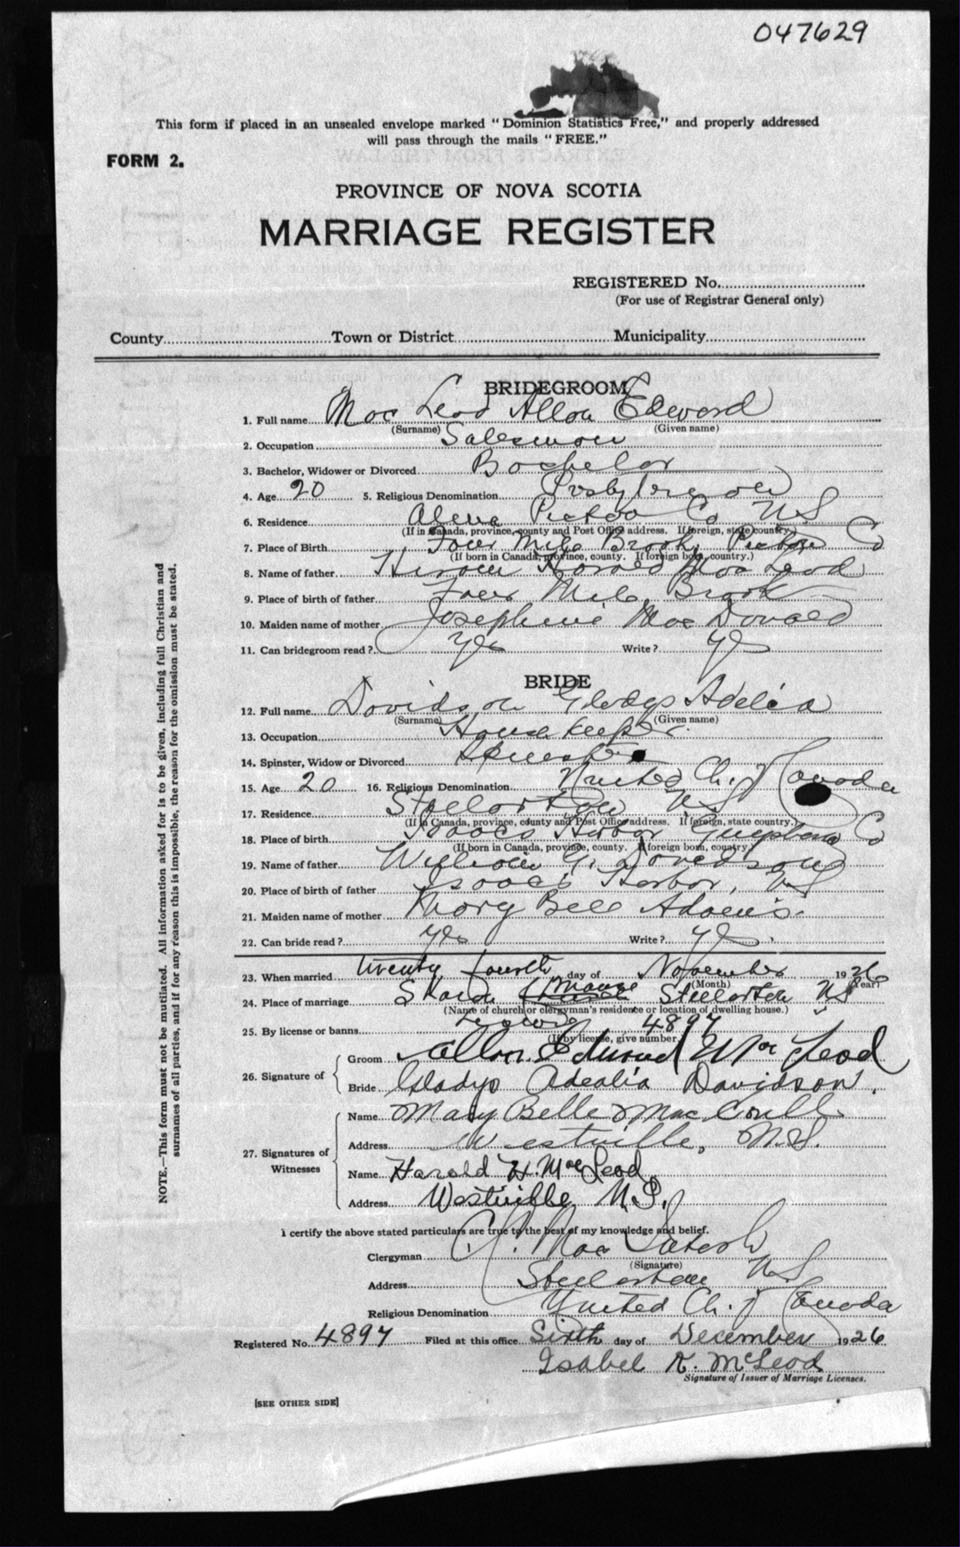 047629
This form if placed in an unsealed envelope marked " Dominion Statistics Free," and properly addressed
will pass through the mails " FREE."
FORM 2.
PROVINCE OF NOVA SCOTIA
MARRIAGE REGISTER
REGISTERED No.
(For use of Registrar General only)
County Town or District Municipality
BRIDEGROOM
1. Full name Mac Leod Allan Edward
(Surname) (Given name)
2. Occupation Salesman
3. Bachelor, Widower or Divorced Bachelor
4. Age 20 5. Religious Denomination Presbyterian
6. Residence Alma Pictou Co NS
(If in Canada, province, county and Post Office address. If foreign, state country.)
7. Place of Birth Four Mile Brook, Pictou Co
(If born in Canada, province, county. If foreign born, country.)
8. Name of father Hiram Harold MacLeod
9. Place of birth of father Four Mile Brook
10. Maiden name of mother Josephine MacDonald
11. Can bridegroom read? Yes Write? Yes
BRIDE
12. Full name Davidson Gladys Adelia
(Surname) (Given name)
13. Occupation Housekeeper
14. Spinster, Widow or Divorced Spinster
15. Age 20 16. Religious Denomination United Ch. of Canada
17. Residence Stellarton NS
(If in Canada, province, county and Post Office address. If foreign, state country.)
18. Place of birth Isaacs Harbor Guysboro Co
(If born in Canada, province, county. If foreign born, country.)
19. Name of father William G. Davidson
20. Place of birth of father Isaac's Harbor, NS
21. Maiden name of mother Mary Bell Adams
22. Can bride read? Yes Write? Yes
23. When married twenty fourth day of November 1926
(Month) (Year)
24. Place of marriage Sharon Manse Stellarton NS
(Name of church or clergyman's residence or location of dwelling house.)
25. By license or banns License 4897
(If by license, give number.)
26. Signature of
Groom Allan Edward MacLeod
Bride Gladys Adealia Davidson.
27. Signatures of Witnesses
Name Mary Belle MacCoull
Address Westville, N.S.
Name Harold H. MacLeod
Address Westville N.S.
I certify the above stated particulars are true to the best of my knowledge and belief.
Clergyman MacIntosh
(Signature)
Address Stellarton NS
Religious Denomination United Ch. of Canada
Registered No. 4897 Filed at this office Sixth day of December 1926
Isabel McLeod
Signature of Issuer of Marriage Licenses.
[SEE OTHER SIDE]
NOTE.—This form must not be mutilated. All information asked for is to be given, including full Christian and
surnames of all parties, and if for any reason this is impossible, the reason for the omission must be stated.